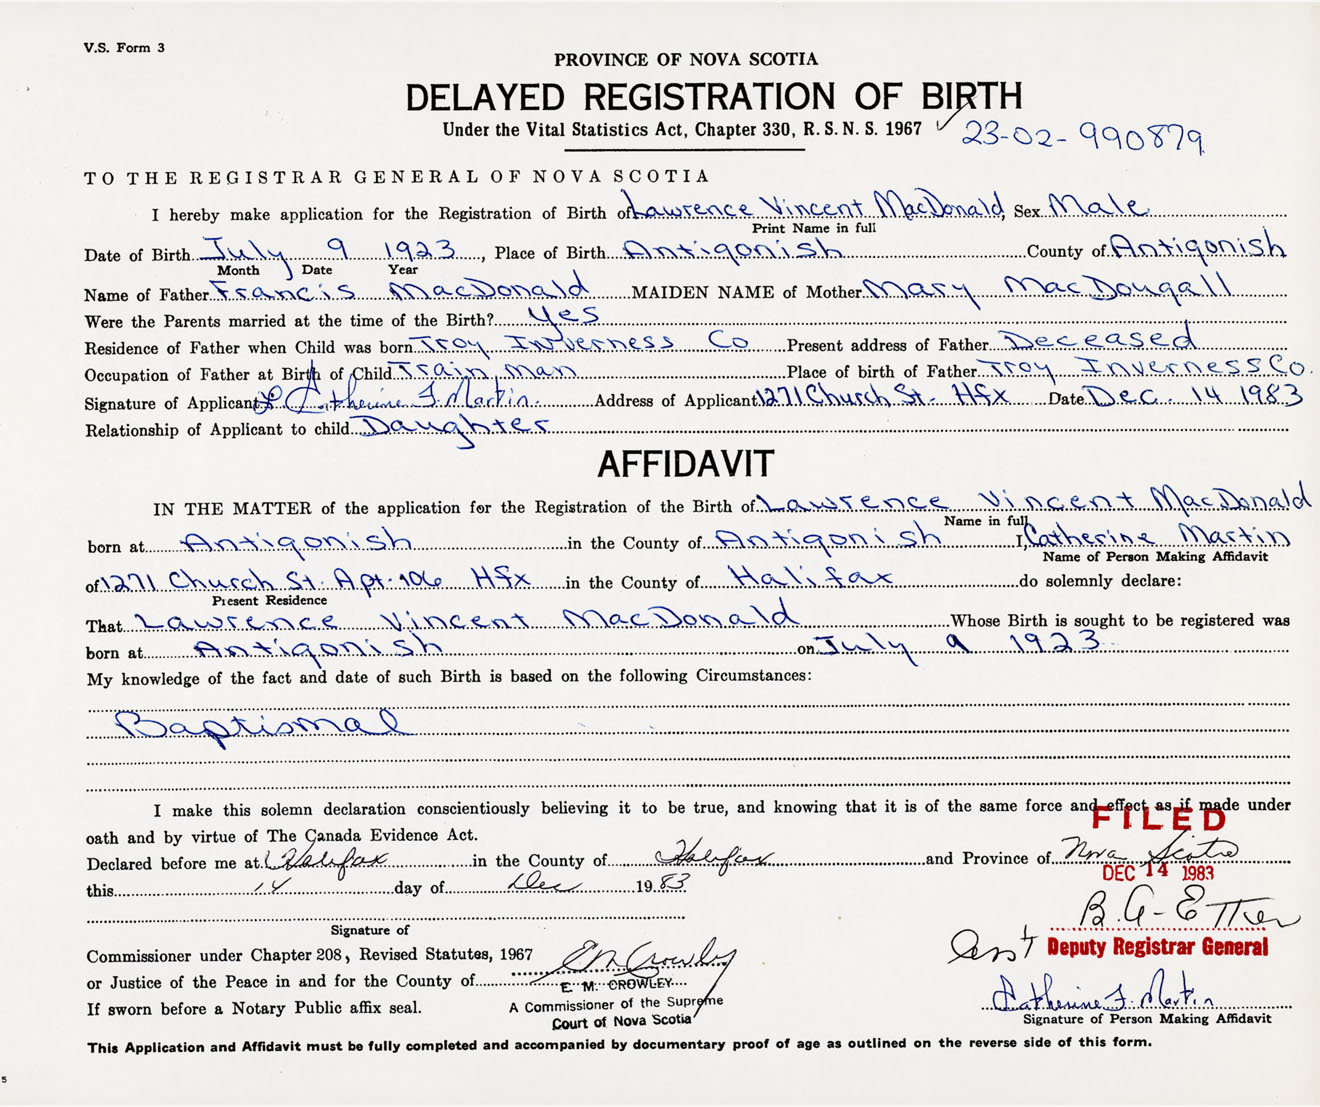 V.S. Form 3
PROVINCE OF NOVA SCOTIA
DELAYED REGISTRATION OF BIRTH
Under the Vital Statistics Act, Chapter 330, R.S.N.S. 1967 ✓ 23-02-990879
TO THE REGISTRAR GENERAL OF NOVA SCOTIA
I hereby make application for the Registration of Birth of Lawrence Vincent MacDonald, Sex Male
Print Name in full
Date of Birth July 9 1923, Place of Birth Antigonish County of Antigonish
Month Date Year
Name of Father Francis MacDonald MAIDEN NAME of Mother Mary MacDougall
Were the Parents married at the time of the Birth? Yes
Residence of Father when Child was born Troy Inverness Co Present address of Father Deceased
Occupation of Father at Birth of Child Train man Place of birth of Father Troy Inverness Co.
Signature of Applicant X Catherine F. Martin. Address of Applicant 1271 Church St. Hfx Date Dec. 14 1983
Relationship of Applicant to child Daughter
AFFIDAVIT
IN THE MATTER of the application for the Registration of the Birth of Lawrence Vincent MacDonald
Name in full
born at Antigonish in the County of Antigonish I, Catherine Martin
Name of Person Making Affidavit
of 1271 Church St. Apt. 106 Hfx in the County of Halifax do solemnly declare:
Present Residence
That Lawrence Vincent MacDonald Whose Birth is sought to be registered was
born at Antigonish on July 9 1923
My knowledge of the fact and date of such Birth is based on the following Circumstances:
Baptismal
I make this solemn declaration conscientiously believing it to be true, and knowing that it is of the same force and effect as if made under
oath and by virtue of The Canada Evidence Act.
FILED
Declared before me at Halifax in the County of Halifax and Province of Nova Scotia
DEC 14 1983
this 14 day of Dec 1983
B.A. Etter
Signature of
Ass't Deputy Registrar General
Commissioner under Chapter 208, Revised Statutes, 1967 EM Crowley
or Justice of the Peace in and for the County of E. M. CROWLEY
Catherine F. Martin
If sworn before a Notary Public affix seal. A Commissioner of the Supreme
Court of Nova Scotia
Signature of Person Making Affidavit
This Application and Affidavit must be fully completed and accompanied by documentary proof of age as outlined on the reverse side of this form.
5